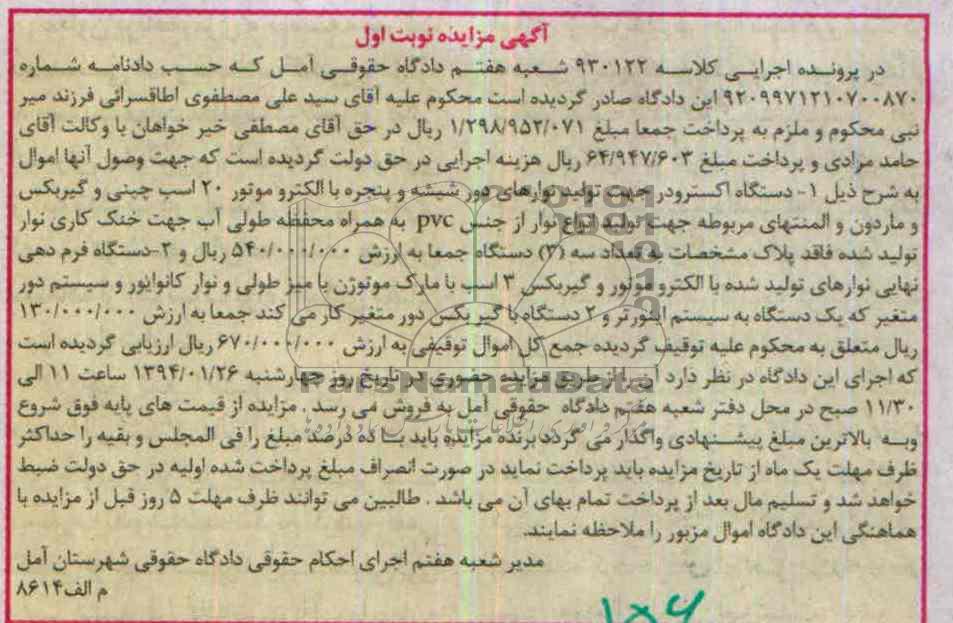 آگهی مزایده نوبت اول
در پرونده اجرایی کلاسه ۹۳۰۱۲۲ شعبه هفتم دادگاه حقوقی آمل که حسب دادنامه شماره
۹۲۰۹۹۷۱۲۱۰۷۰۰۸۷۰ این دادگاه صادر گردیده است محکوم علیه آقای سید علی مصطفوی اطاقسرائی فرزند میر
نبی محکوم و ملزم به پرداخت جمعا مبلغ ۱/۲۹۸/۹۵۲/۰۷۱ ریال در حق آقای مصطفی خیر خواهان با وکالت آقای
حامد مرادی و پرداخت مبلغ ۶۴/۹۴۷/۶۰۳ ریال هزینه اجرایی در حق دولت گردیده است که جهت وصول آنها اموال
به شرح ذیل ۱- دستگاه اکسترودر جهت تولید نوارهای دور شیشه و پنجره با الکترو موتور ۲۰ اسب چینی و گیربکس
و ماردون و المنتهای مربوطه جهت تولید انواع نوار از جنس pvc به همراه محفظه طولی آب جهت خنک کاری نوار
تولید شده فاقد پلاک مشخصات به تعداد سه (۳) دستگاه جمعا به ارزش ۵۴۰/۰۰۰/۰۰۰ ریال و ۲-دستگاه فرم دهی
نهایی نوارهای تولید شده با الکترو موتور و گیربکس ۳ اسب با مارک موتوژن با میز طولی و نوار کانوایور و سیستم دور
متغیر که یک دستگاه به سیستم اینورتر و ۲ دستگاه با گیر بکس دور متغیر کار می کند جمعا به ارزش ۱۳۰/۰۰۰/۰۰۰
ریال متعلق به محکوم علیه توقیف گردیده جمع کل اموال توقیفی به ارزش ۶۷۰/۰۰۰/۰۰۰ ریال ارزیابی گردیده است
که اجرای این دادگاه در نظر دارد از طریق مزایده حضوری در تاریخ روز چهارشنبه ۱۳۹۴/۰۱/۲۶ ساعت ۱۱ الی
۱۱/۳۰ صبح در محل دفتر شعبه هفتم دادگاه حقوقی آمل به فروش می رسد . مزایده از قیمت های پایه فوق شروع
وبه بالاترین مبلغ پیشنهادی واگذار می گردد برنده مزایده باید بـا ده درصد مبلغ را فی المجلس و بقیه را حداکثر
ظرف مهلت یک ماه از تاریخ مزایده باید پرداخت نماید در صورت انصراف مبلغ پرداخت شده اولیه در حق دولت ضبط
خواهد شد و تسلیم مال بعد از پرداخت تمام بهای آن می باشد . طالبین می توانند ظرف مهلت ۵ روز قبل از مزایده با
هماهنگی این دادگاه اموال مزبور را ملاحظه نمایند.
مدیر شعبه هفتم اجرای احکام حقوقی دادگاه حقوقی شهرستان آمل
م الف ۸۶۱۴
Pars Namad Data